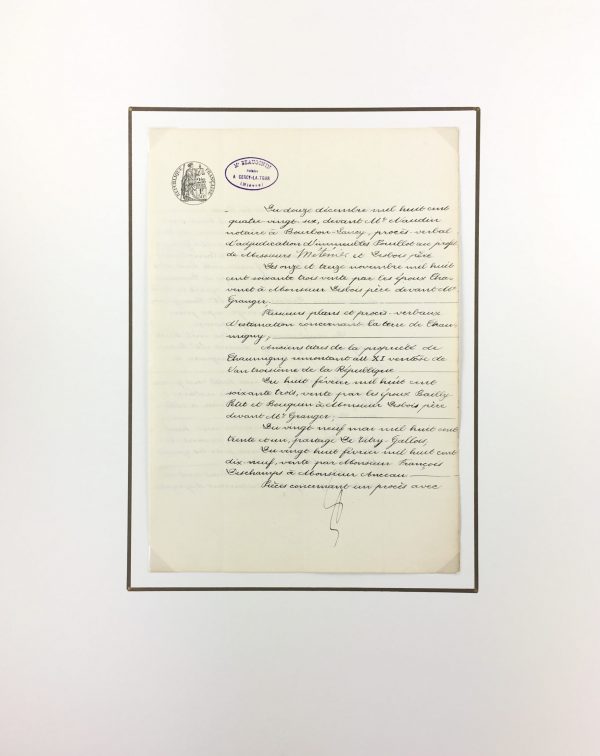 RÉPUBLIQUE FRANÇAISE
Me BEAUDOUIN
Notaire
A CERCY-LA-TOUR
(Nièvre)
Du douze décembre mil huit cent
quatre vingt six, devant Me Naudin
notaire à Bourbon-Lancy, procès-verbal
d'adjudication d'immeubles Pouillot au profit
de Messieurs et Desbois père
Des onze et treize novembre mil huit
cent soixante trois vente par les époux Cha-
vinet à Monsieur Desbois père devant Me
Granger.
Plusieurs plans et procès-verbaux
d'estimation concernant la terre de Chau-
migny;
Anciens titres de la propriété de
Chaumigny remontant au XI ventôse de
l'an troisième de la République
Du huit février mil huit cent
soixante trois, vente par les époux Bailly-
Petit et à Monsieur Desbois père
devant Me Granger;
Du vingt neuf mai mil huit cent
trente et un, partage De Vitry-Gallois,
Du vingt huit février mil huit cent
dix neuf, vente par Monsieur François
Deschamps à Monsieur Anceau
Pièces concernant un procès avec